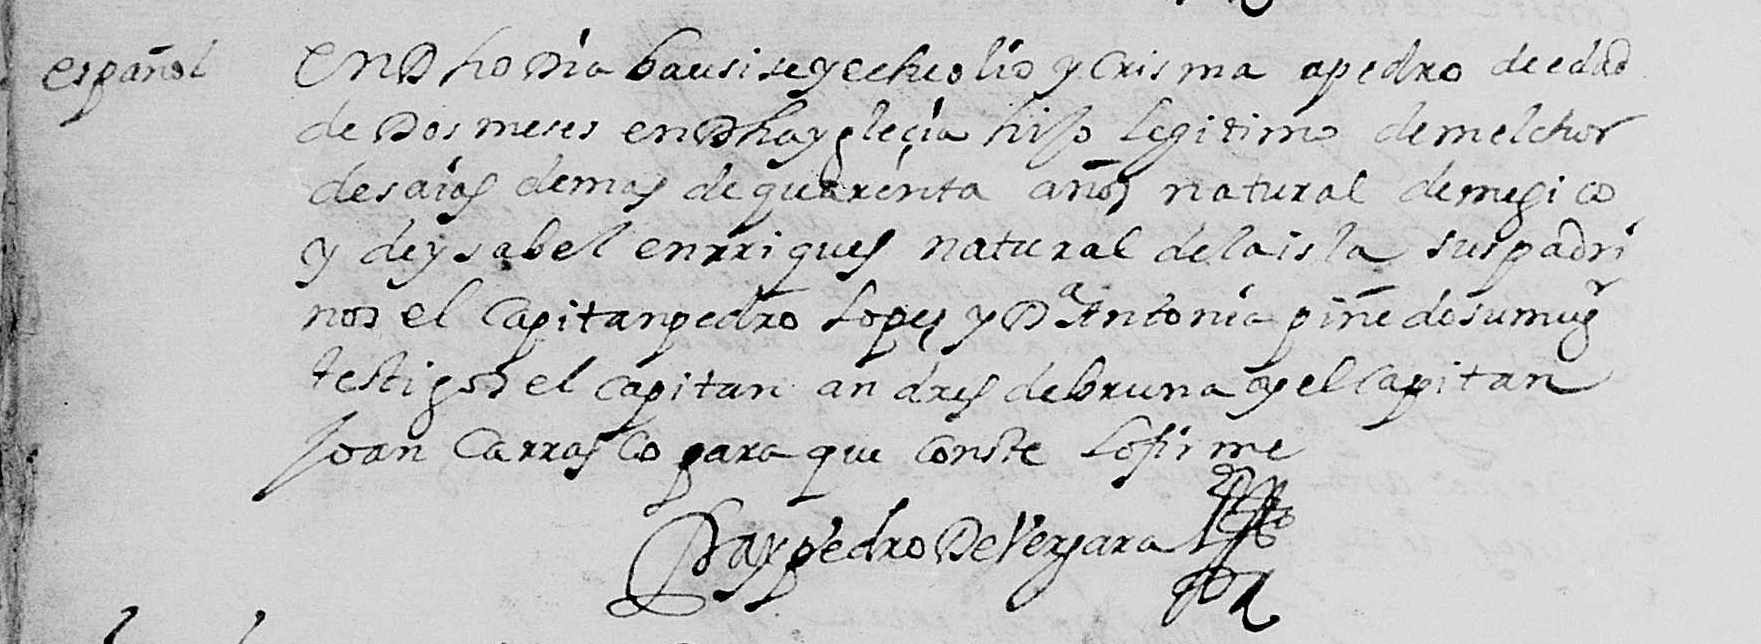 español
En Dho Dia bautise y eche olio y Crisma a pedro de edad
de Dos meses en Dha ygleçia hijo legitimo de melchor
de saias de mas de quarenta años natural de megico
y de ysabel enrriques natural de la isla sus padri
nos el Capitan pedro Lopes y Da Antonia piñedo su mugr
testigos el capitan andres de bruna y el Capitan
Joan Carrasco para que Conste lo firme
Fray pedro De Vergara